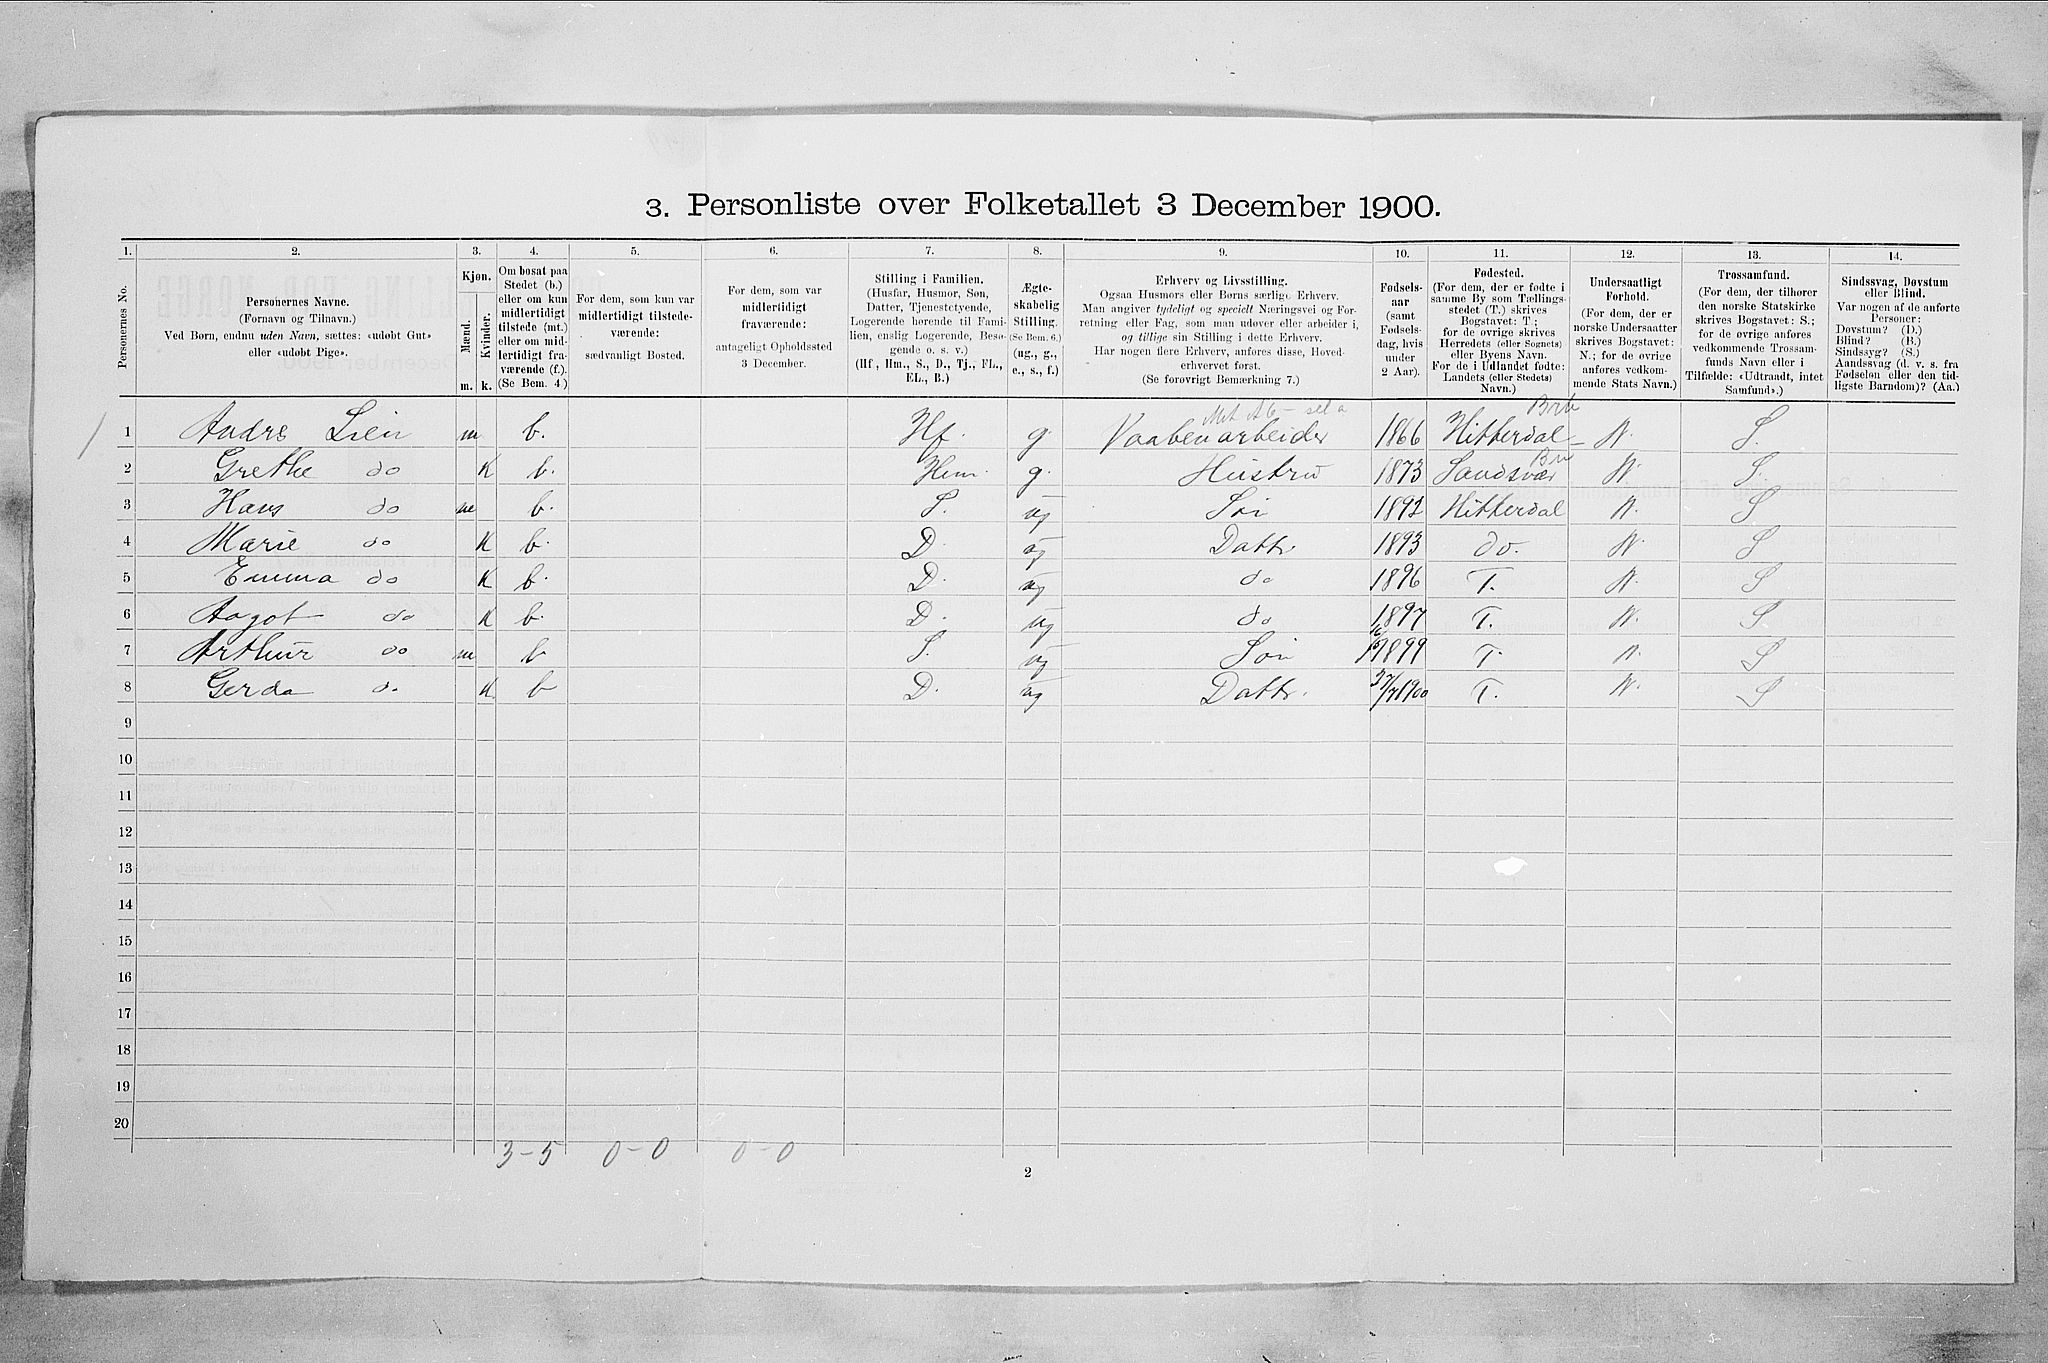 3. Personliste over Folketallet 3 December 1900.
1. 2. 3. 4. 5. 6. 7. 8. 9. 10. 11. 12. 13. 14.
Personernes No.
Personernes Navne.
(Fornavn og Tilnavn.)
Ved Børn, endnu uden Navn, sættes: «udøbt Gut»
eller «udøbt Pige».
Kjøn.
Mænd.
Kvinder.
m. k.
Om bosat paa
Stedet (b.)
eller om kun
midlertidigt
tilstede (mt.)
eller om mid-
lertidigt fra-
værende (f.).
(Se Bem. 4.)
For dem, som kun var
midlertidigt tilstede-
værende:
sædvanligt Bosted.
For dem, som var
midlertidigt
fraværende:
antageligt Opholdssted
3 December.
Stilling i Familien.
(Husfar, Husmor, Søn,
Datter, Tjenestetyende,
Logerende hørende til Fami-
lien, enslig Logerende, Besø-
gende o. s. v.)
(Hf., Hm., S., D., Tj., FL.,
EL., B.)
Ægte-
skabelig
Stilling.
(Se Bem. 6.)
(ug., g.,
e., s., f.)
Erhverv og Livsstilling.
Ogsaa Husmors eller Børns særlige Erhverv.
Man angiver tydeligt og specielt Næringsvei og For-
retning eller Fag, som man udøver eller arbeider i,
og tillige sin Stilling i dette Erhverv.
Har nogen flere Erhverv, anføres disse, Hoved-
erhvervet først.
(Se forøvrigt Bemærkning 7.)
Fødsels-
aar
(samt
Fødsels-
dag, hvis
under
2 Aar).
Fødested.
(For dem, der er fødte i
samme By som Tællings-
stedet (T.) skrives
Bogstavet: T;
for de øvrige skrives
Herredets (eller Sognets)
eller Byens Navn.
For de i Udlandet fødte:
Landets (eller Stedets)
Navn.)
Undersaatligt
Forhold.
(For dem, der er
norske Undersaatter
skrives Bogstavet:
N.; for de øvrige
anføres vedkom-
mende Stats Navn.)
Trossamfund.
(For dem, der tilhører
den norske Statskirke
skrives Bogstavet: S.;
for de øvrige anføres
vedkommende Trossam-
funds Navn eller i
Tilfælde: «Udtraadt, intet
Samfund».)
Sindssvag, Døvstum
eller Blind.
Var nogen af de anførte
Personer:
Døvstum? (D.)
Blind? (B.)
Sindssyg? (S.)
Aandssvag (d. v. s. fra
Fødselen eller den tid-
ligste Barndom)? (Aa.)
1 Andrs Lien m b. Hf. g. Vaabenarbeider 1866 Hitterdal N. S.
2 Grethe do K b. Hm. g. Hustru 1873 Sandsvær N. S.
3 Hans do m b. S. ug Søn 1892 Hitterdal N. S
4 Marie do K b. D. ug Dattr. 1893 do. N. S
5 Emma do K b. D. ug do 1896 T. N. S
6 Aagot do K b. D. ug do 1897 T. N. S
7 Arthur do m b S. ug Søn 1899 T. N. S
8 Gerda do K b D. ug Dattr. 1900 T. N. S
9
10
11
12
13
14
15
16
17
18
19
20
3-5 0-0 0-0
2